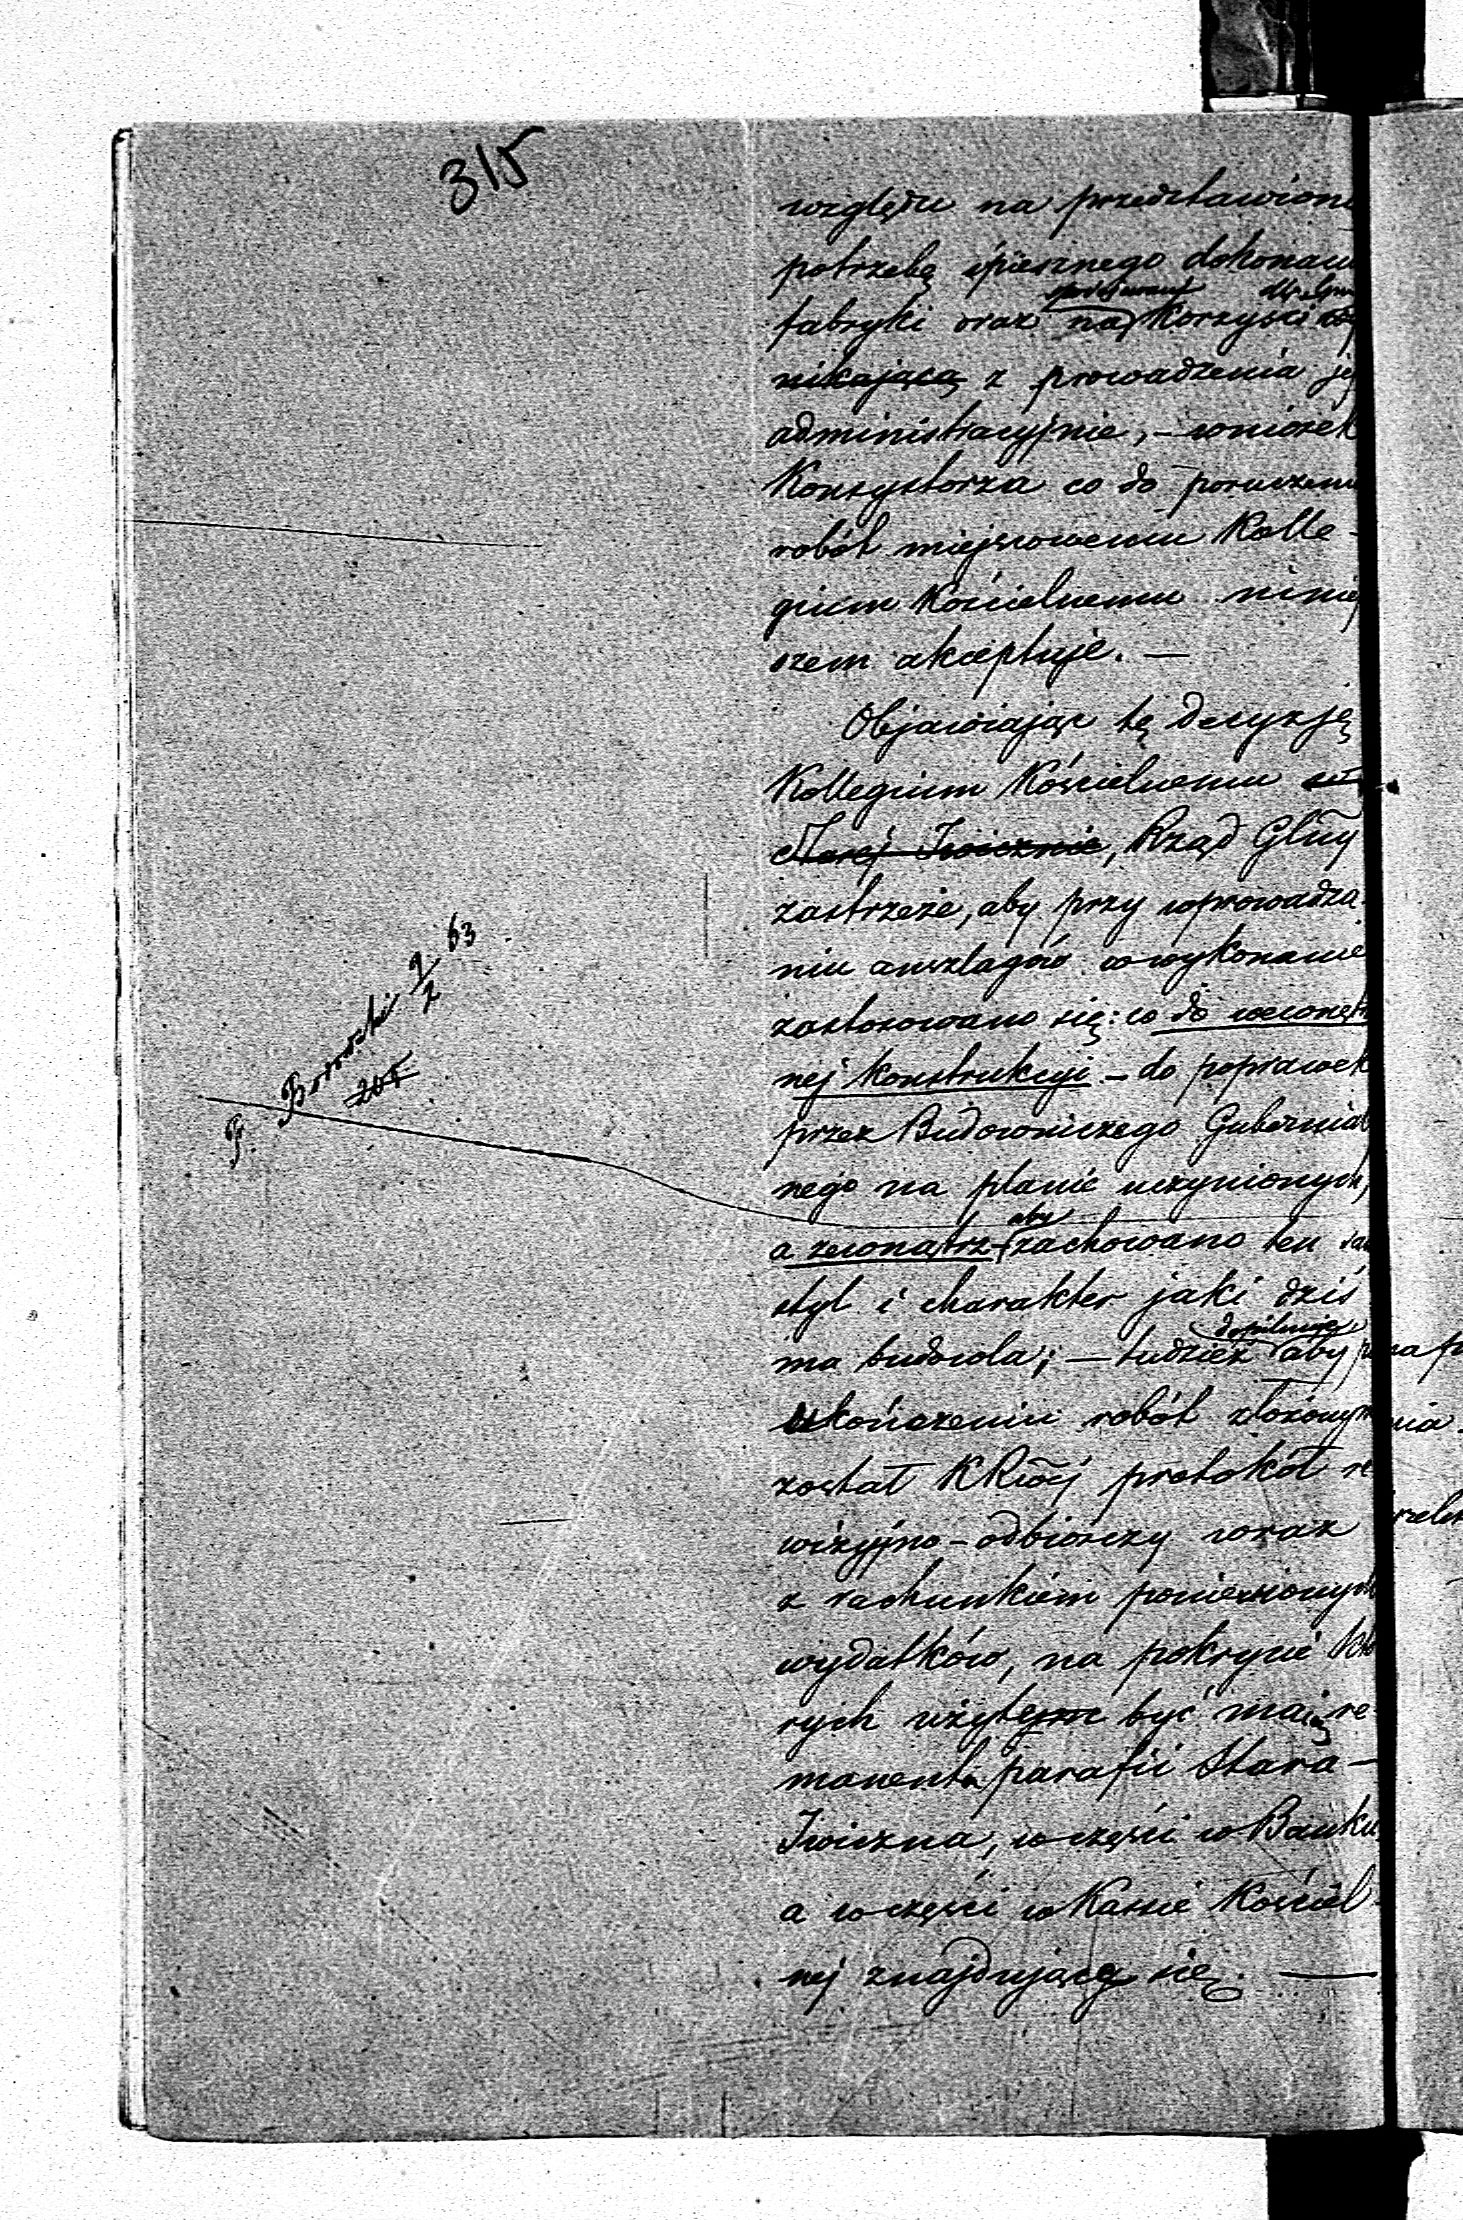 315
względu na przedstawioną
potrzebę śpiesznego dokonani
fabryki oraz na korzyści wy
nikającą z prowadzenia jej
administracyjnie, – wniosek
Konsystorza co do poruczeni
robót miejscowemu Kolle-
gium Kościelnemu niniej
szem akceptuje. —
Objawiając tę decyzję
Kollegium Kościelnemu w
Starej Iwicznie, Rząd Głny
zastrzeże, aby przy wprowadza-
niu anszlagów w wykonanie
zastosowano się: co do wewnętrz
nej konstrukcyi – do poprawek
przez Budowniczego Gubernial
nego na planie uczynionych,
aby
a zewnątrz zachowano ten sam
styl i charakter jaki dziś
dopilnuje
ma budowla; — tudzież aby po
ukończeniu robót złożonym
został KRiój protokół re
wizyjno-odbiorczy wraz
z rachunkiem poniesionych
wydatków, na pokrycie któ
rych użytym być mają re-
manenta parafii Stara –
Iwiczna, w części w Banku
a w części w Kassie Kościel-
nej znajdujące się. —
P. Borowski 9/2 63
205